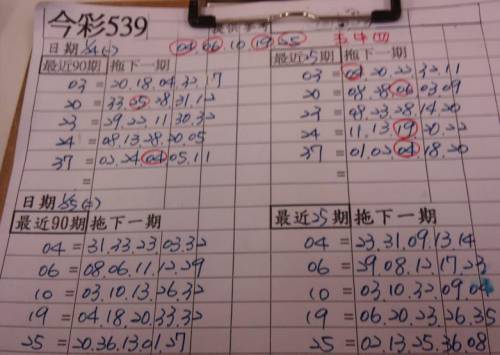 今彩539
日期 8/4 04.06.10.19.25
最近90期 拖下一期
03 = 20.18.04.32.17
20 = 33.05.28.31.12
23 = 29.22.11.30.32
24 = 08.13.28.20.05
37 = 02.24.04.05.11
=
最近25期 拖下一期
03 = 04.20.22.32.11
20 = 08.28.06.03.09
23 = 08.23.28.14.20
24 = 11.13.19.20.22
37 = 01.02.04.18.20
=
日期 8/5
最近90期 拖下一期
04 = 31.33.23.03.32
06 = 08.06.11.12.29
10 = 03.10.13.26.32
19 = 04.18.20.33.32
25 = 20.36.13.01.27
最近25期 拖下一期
04 = 23.31.09.13.14
06 = 29.08.12.17.23
10 = 03.10.32.09.04
19 = 06.20.23.26.35
25 = 02.13.25.36.08